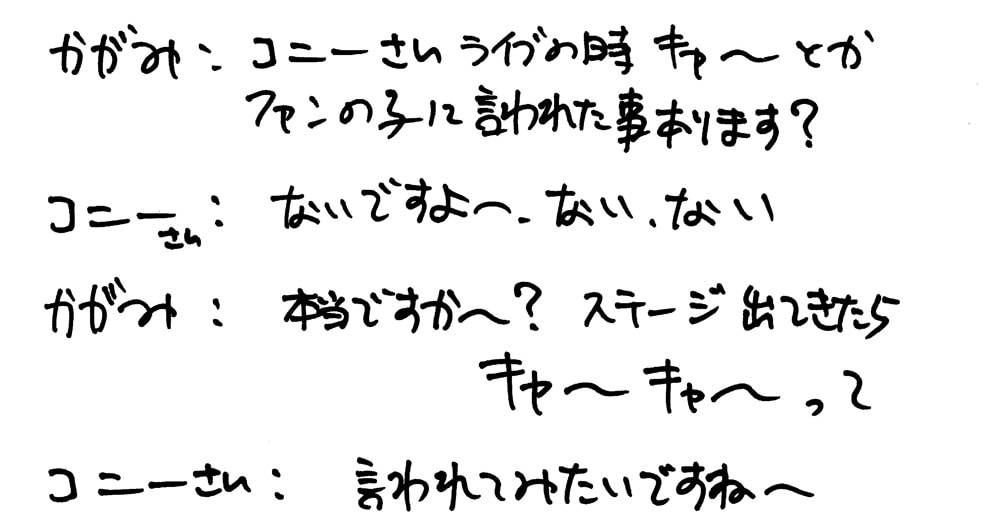 かがみ：コニーさん ライブの時 キャ〜とか
ファンの子に言われた事あります？
コニーさん：ないですよ〜、ない、ない
かがみ：本当ですか〜？ ステージ出てきたら
キャ〜キャ〜って
コニーさん：言われてみたいですね〜